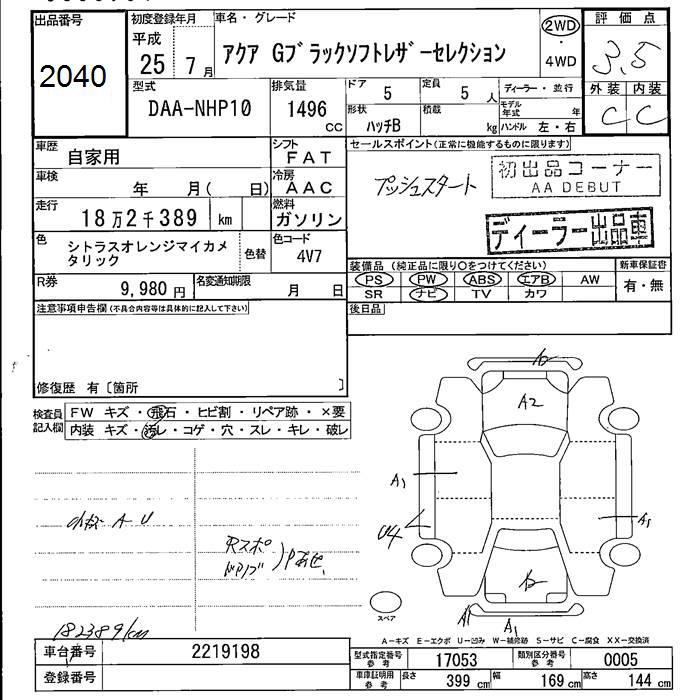 出品番号
2040
初度登録年月
平成
25 7月
車名・グレード
アクア Gブラックソフトレザーセレクション
2WD
・
4WD
評価点
3.5
外装 内装
C C
型式
DAA-NHP10
排気量
1496
cc
ドア
5
定員
5 人
ディーラー・並行
形状
ハッチB
積載
kg
モデル年式 年
ハンドル 左・右
車歴
自家用
シフト
FAT
車検
年 月( 日)
冷房
AAC
走行
18万2千389 km
燃料
ガソリン
色
シトラスオレンジマイカメタリック
色替
色コード
4V7
R券
9,980円
名変通知期限
月 日
セールスポイント(正常に機能するものに限ります)
プッシュスタート
初出品コーナー
AA DEBUT
ディーラー出品車
装備品(純正品に限り○をつけてください)
PS PW ABS エアB AW
SR ナビ TV カワ
新車保証書
有・無
後日品
注意事項申告欄(不具合内容等は具体的に記入して下さい)
修復歴 有〔箇所 〕
検査員記入欄
FW キズ・飛石・ヒビ割・リペア跡・×要
内装 キズ・汚レ・コゲ・穴・スレ・キレ・破レ
小キズ A U
182389km
A2
A1
U4
A1
A1
A1
スペア
A-キズ E-エクボ U-凹み W-補修跡 S-サビ C-腐食 XX-交換済
車台番号
2219198
登録番号
型式指定番号
参考
17053
類別区分番号
参考
0005
車庫証明用
参考
長さ
399 cm
幅
169 cm
高さ
144 cm